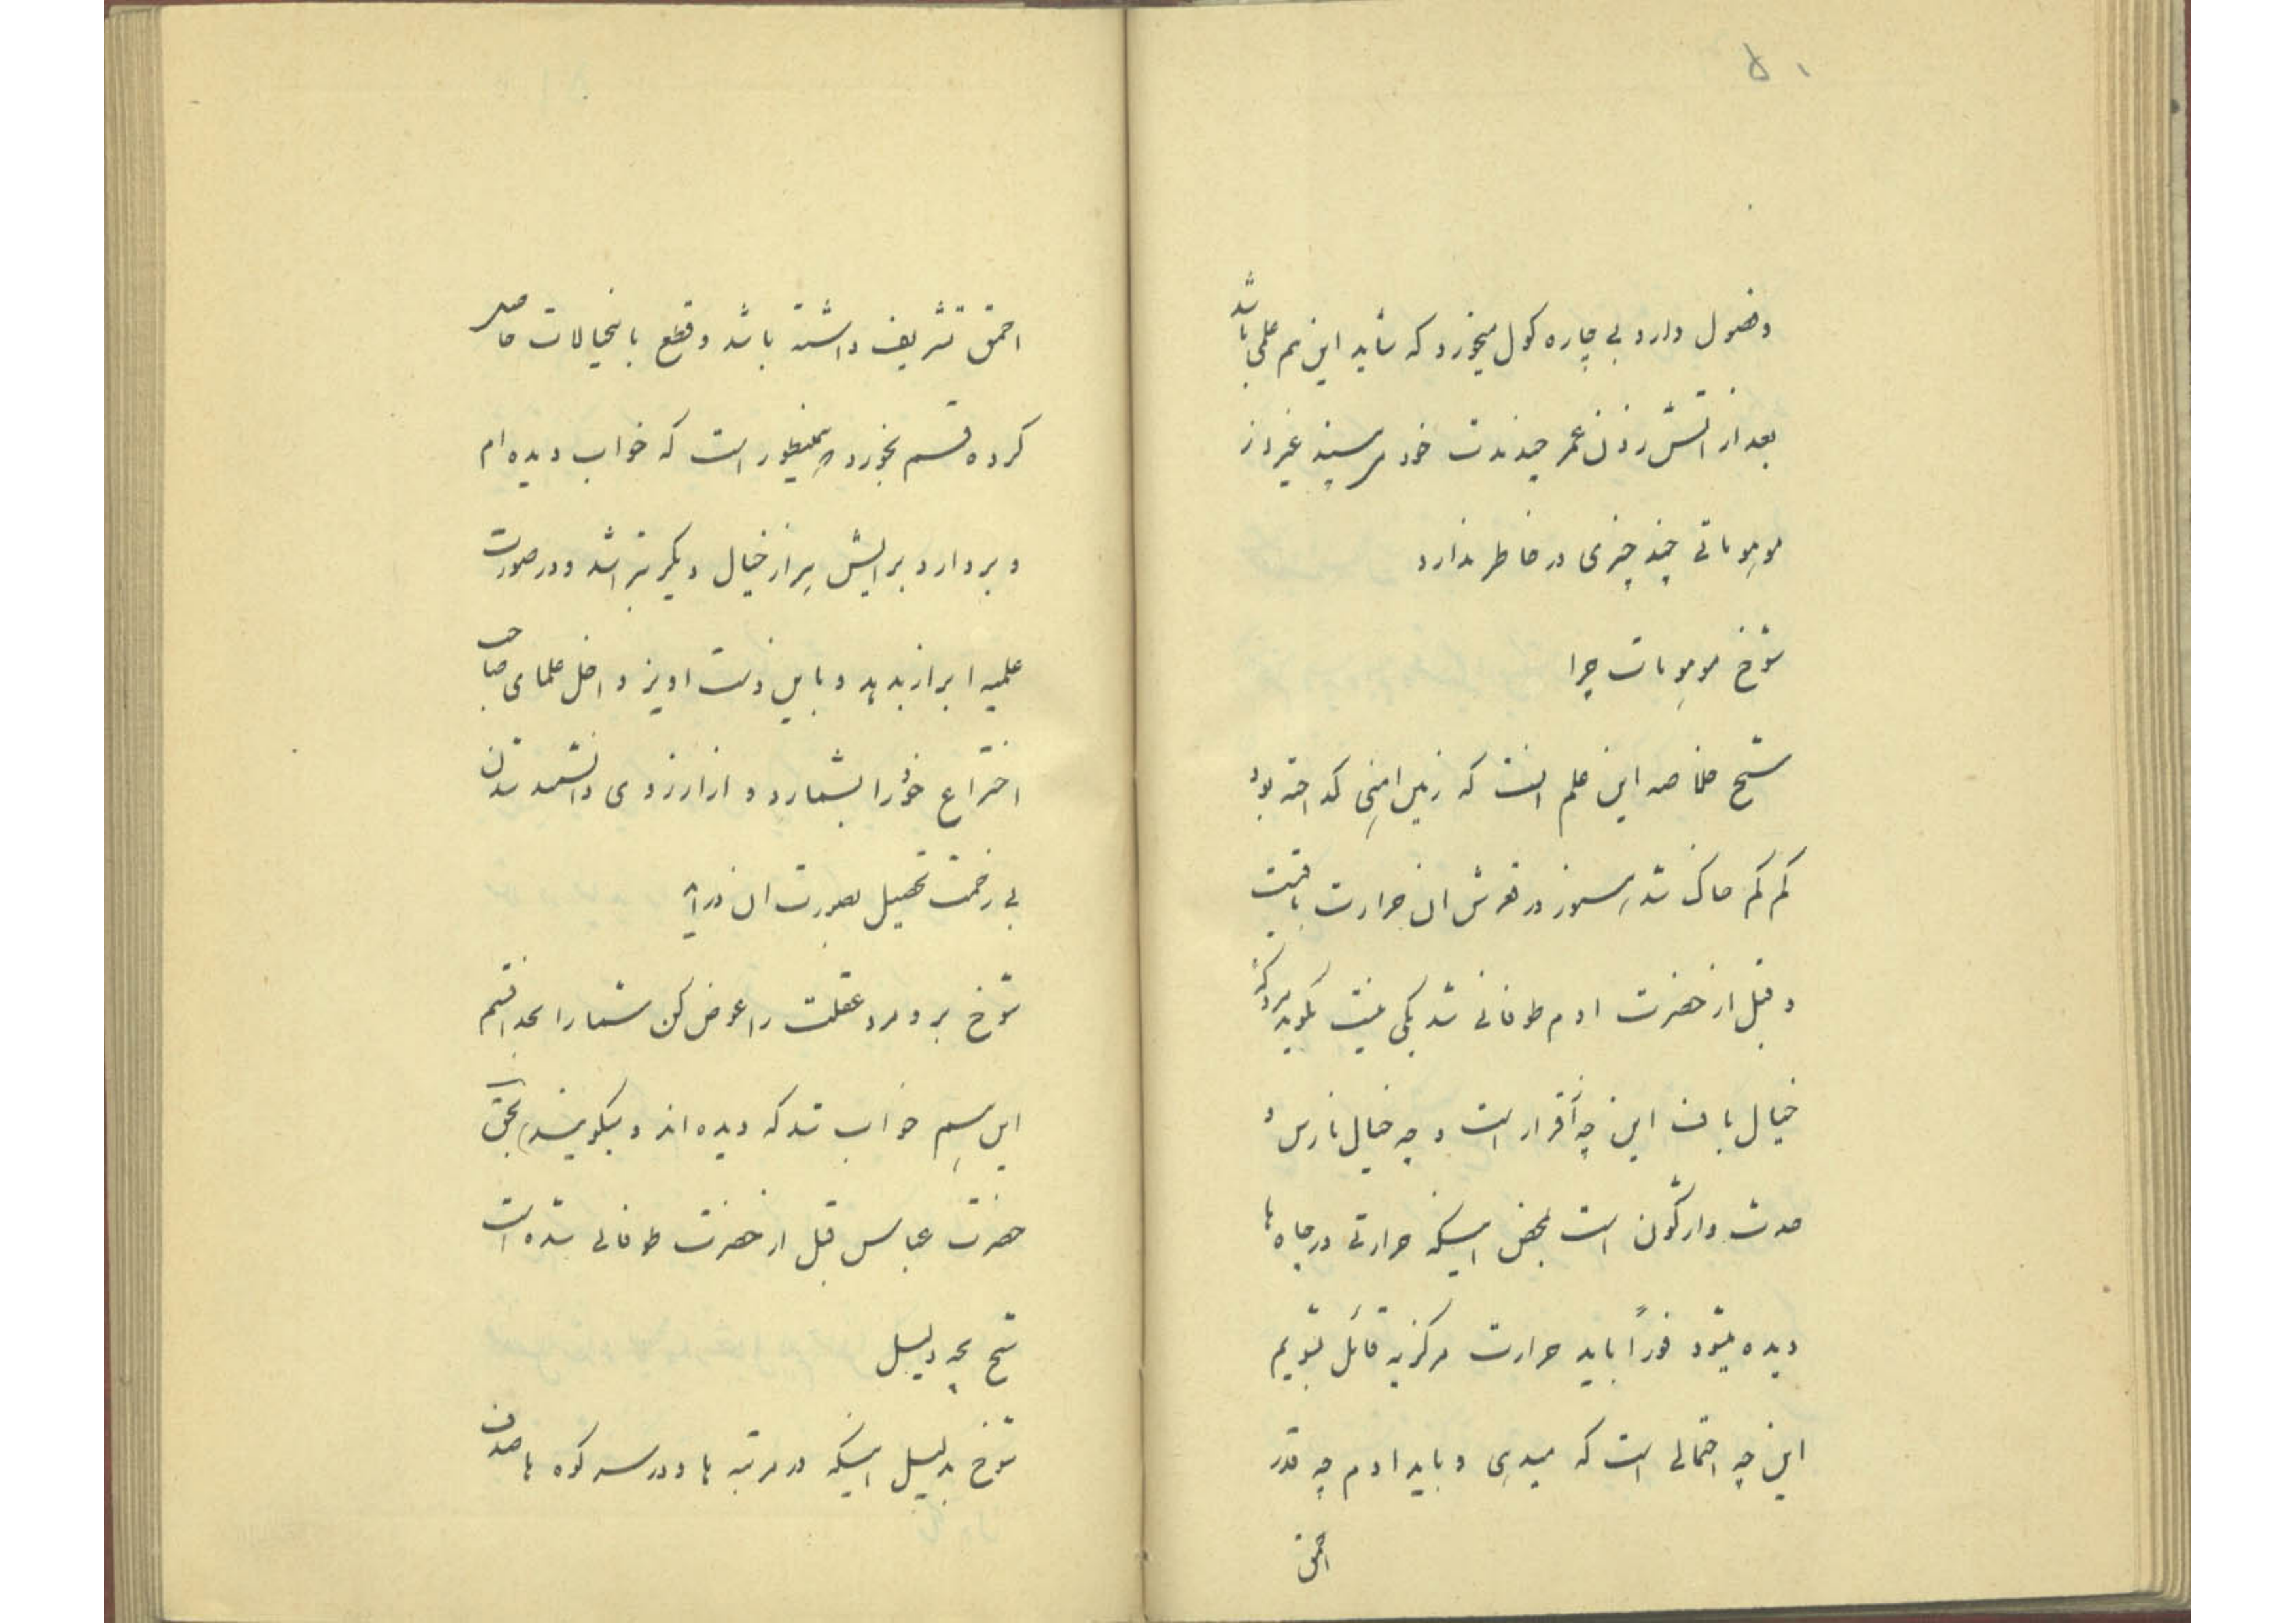 ۵۰
و فضول دارد بی چاره کول میخورد که شاید این هم علمی باشد
بعد از اتش زدن عمر چند مدت خود میرسیند غیر از
موهوماتی چند چیزی در خاطر ندارد
شوخ موهومات چرا
شیخ خلاصه این علم انست که زمین اهنی کداخته بود
کم کم خاک شد هنوز در قعرش ان حرارت باقیست
و قبل از حضرت ادم طوفانی شد یکی نیست بکوید مردکه
خیال باف این چه اقرار است و چه خیال نارس و
حدث وارگون است بمحض اینکه حرارتی در چاه ها
دیده میشود فوراً باید حرارت مرکزیه قائل بشویم
این چه احتمالی است که میدهی و باید ادم چه قدر
احمق
احمق تشریف داشته باشد و قطع باینخیالات حاصل
کرده قسم بخورد همینطور است که خواب دیده ام
و بردارد برایش هزار خیال دیگر بتراشد و در صورت
علمیه ابراز بدهد و باین دست اویز داخل علمای صاحب
اختراع خود را بشمارد و از ارزوی دانشمند شدن
بی زحمت تحصیل بصورت ان درآید
شوخ برو مرد عقلت را عوض کن شما را بخدا قسم
این هم خواب شد که دیده اند و میکویند بحق
حضرت عباس قبل از حضرت طوفانی شده است
شیخ بچه دلیل
شوخ بدلیل اینکه در مرتبه ها و در سر کوه ها صدف